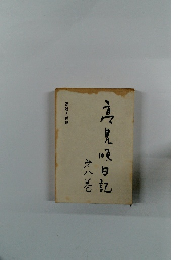 高見順日記
第八巻